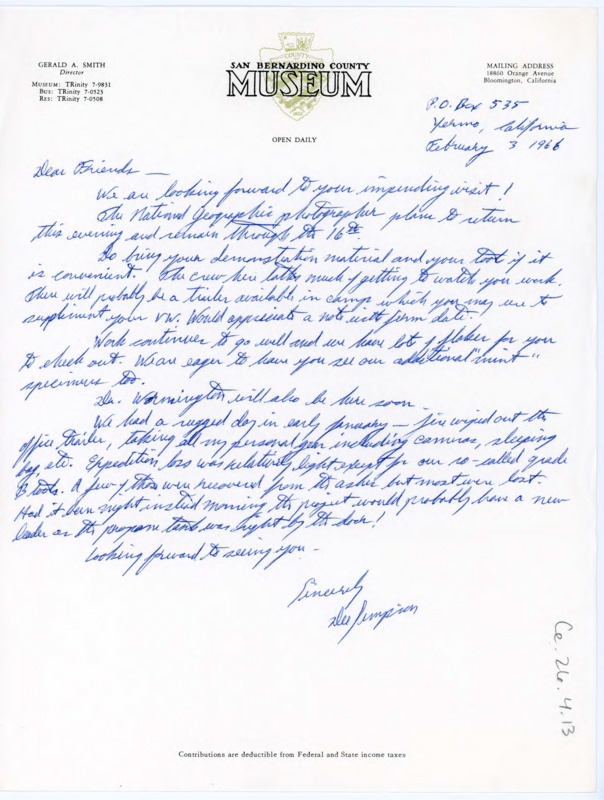 GERALD A. SMITH
Director
MUSEUM: TRinity 7-9831
BUS: TRinity 7-0523
RES: TRinity 7-0508
COUNTY
SAN BERNARDINO COUNTY
MUSEUM
OPEN DAILY
MAILING ADDRESS
18860 Orange Avenue
Bloomington, California
P.O. Box 535
Yermo, California
February 3 1966
Dear Friends —
We are looking forward to your impending visit!
The National Geographic photographer plans to return
this evening and remain through the 16th
Do bring your demonstration material and your tools if it
is convenient. The crew here talks much of getting to watch you work.
There will probably be a trailer available in camp which you may use to
supplement your VW. Would appreciate a note with firm date.
Work continues to go well and we have lots of flakes for you
to check out. We are eager to have you see our additional "mint"
specimens too.
Dr. Wormington will also be here soon.
We had a rugged day in early January — fire wiped out the
office trailer, taking all my personal gear including cameras, sleeping
bag, etc. Expedition loss was relatively light except for our so-called grade
B tools. A few of those were recovered from the ashes but most were lost.
Had it been night instead morning the project would probably have a new
leader as the propane tank was right by the door!
Looking forward to seeing you —
Sincerely
Dee Simpson
Ce.26.4.13
Contributions are deductible from Federal and State income taxes